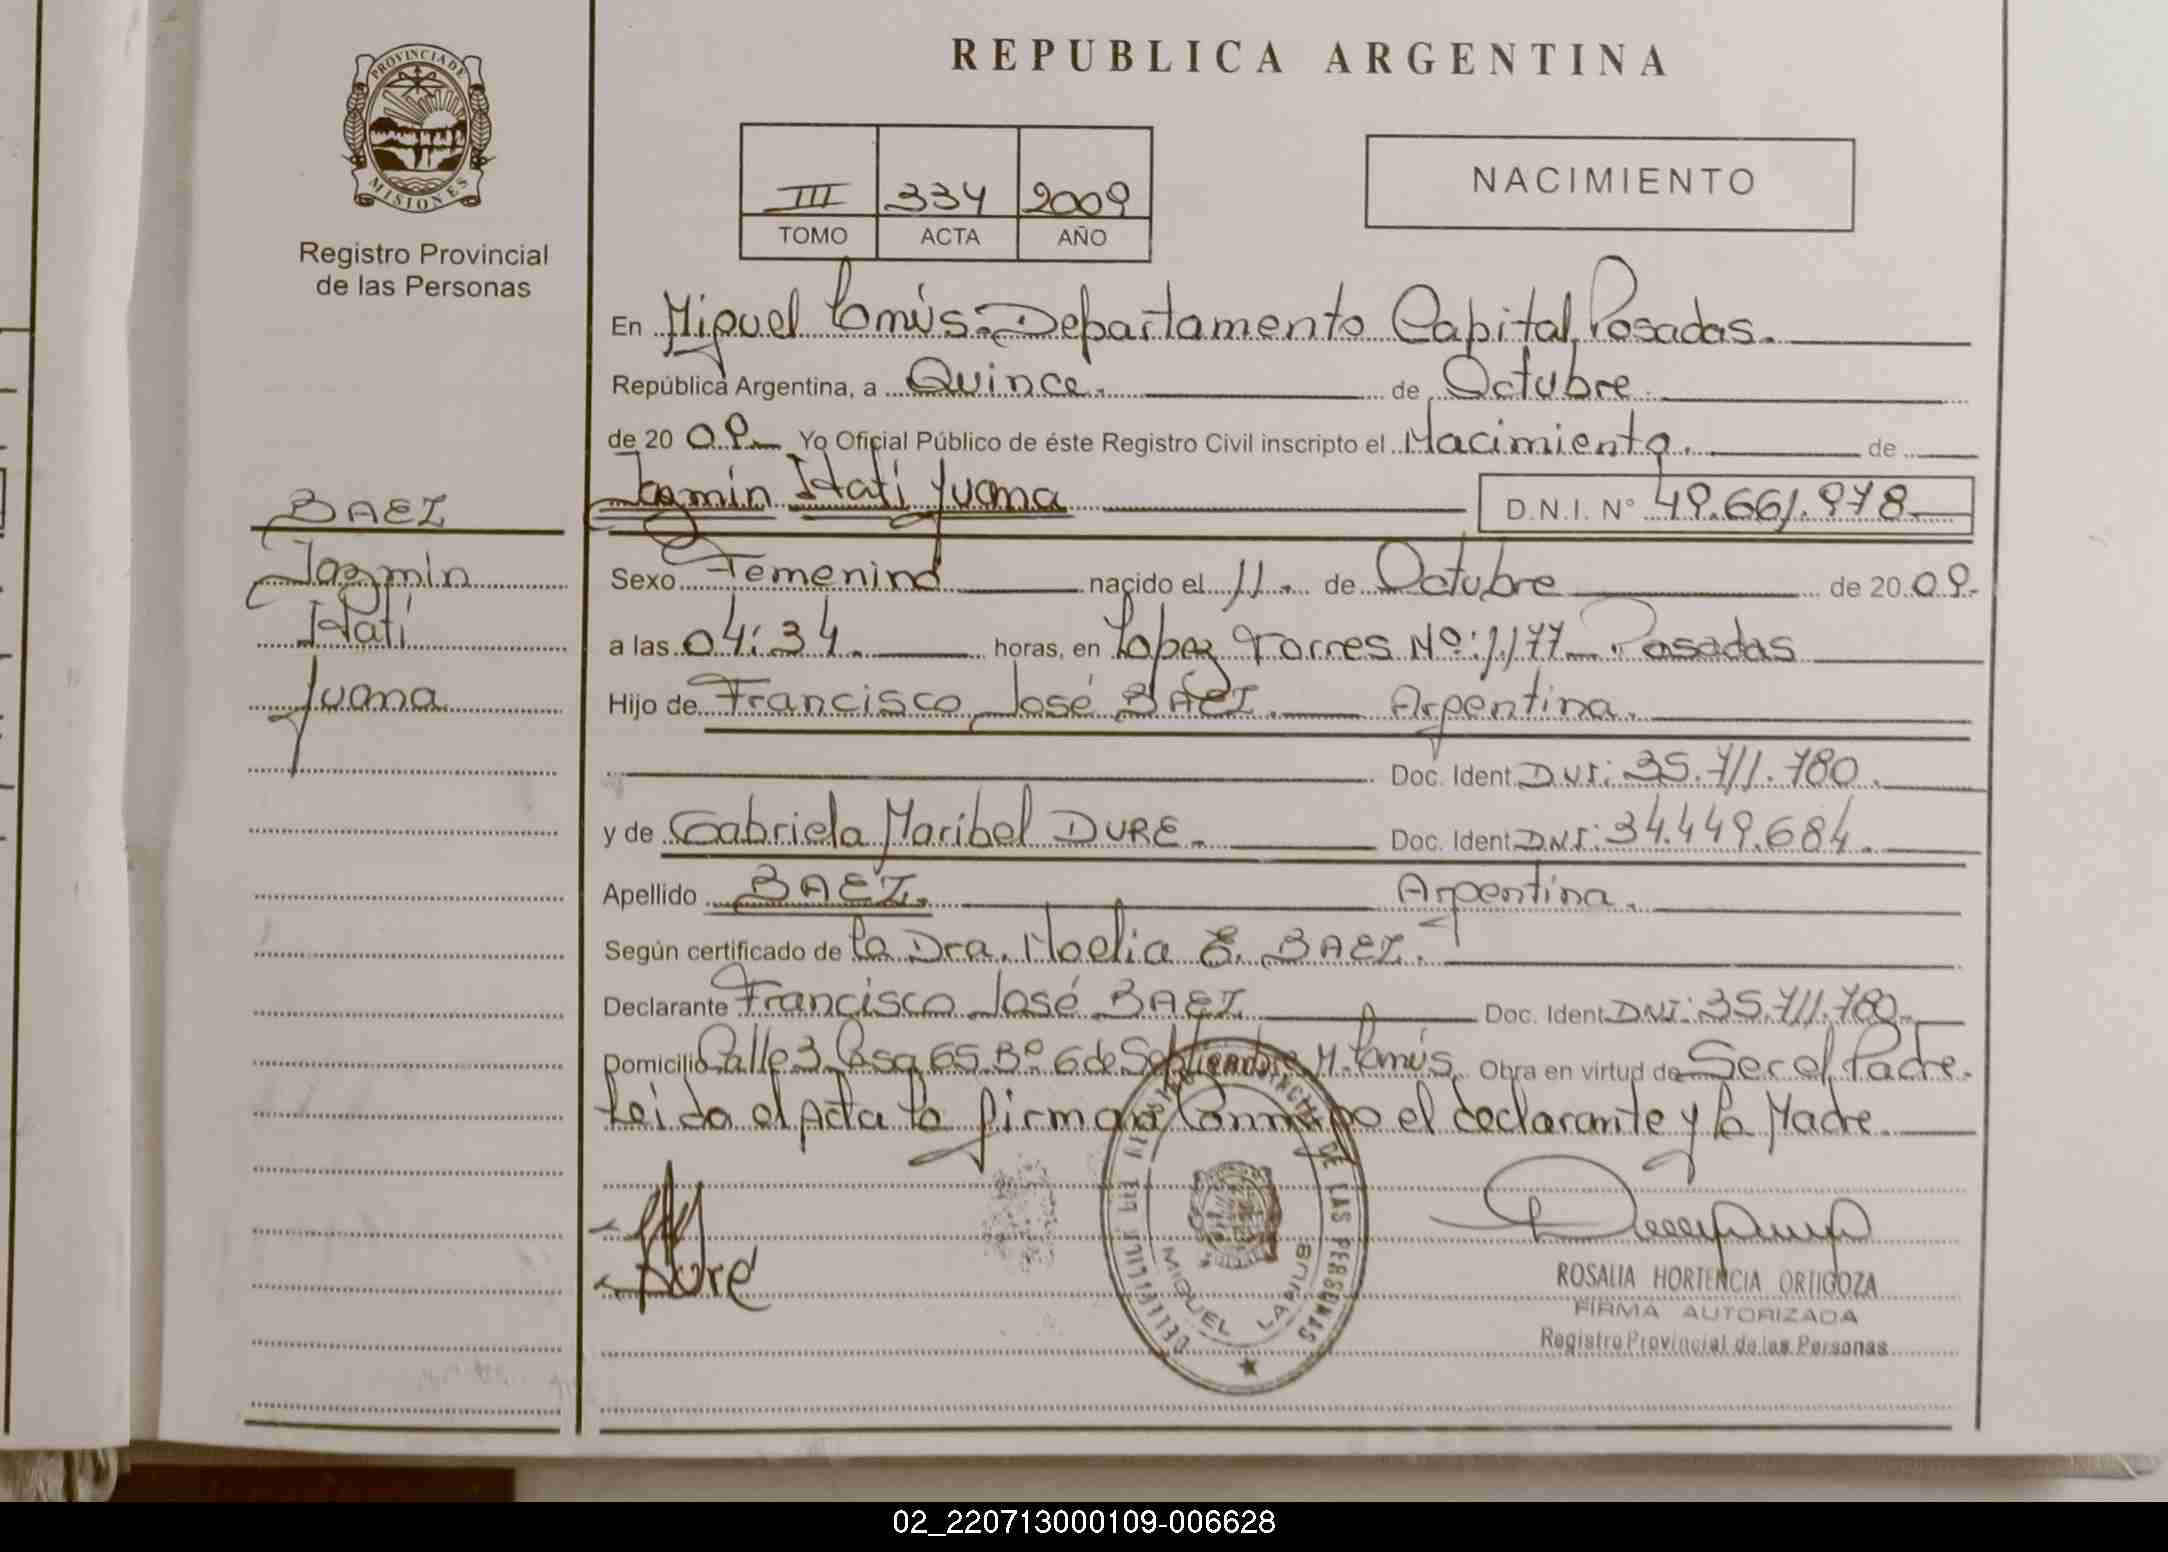 REPUBLICA ARGENTINA
PROVINCIA DE
MISIONES
Registro Provincial
de las Personas
III 334 2009
TOMO ACTA AÑO
NACIMIENTO
En Miguel Lanús. Departamento Capital Posadas.
República Argentina, a Quince. de Octubre
de 2009. Yo Oficial Público de éste Registro Civil inscripto el Nacimiento. de
Jazmin Itati Juana D.N.I. Nº 49.661.978
BAEZ
Jazmin
Itati
Juana
Sexo Femenino nacido el 11. de Octubre de 2009.
a las 04:34. horas, en Lopez Torres Nº:1177. Posadas
Hijo de Francisco José BAEZ. Argentina.
Doc. Ident. DNI: 35.711.780.
y de Gabriela Maribel DURE. Doc. Ident. DNI: 34.449.684.
Apellido BAEZ. Argentina.
Según certificado de la Dra. Noelia E. BAEZ.
Declarante Francisco José BAEZ Doc. Ident. DNI: 35.711.780.
Domicilio Calle 3 Casa 65. Bº 6 de Septiembre M. Lanús. Obra en virtud de Ser el Padre.
Leida el Acta la firman Conmigo el declarante y la Madre.
Dure
DE LAS PERSONAS
MIGUEL LANUS
ROSALIA HORTENCIA ORTIGOZA
FIRMA AUTORIZADA
Registro Provincial de las Personas
02_220713000109-006628